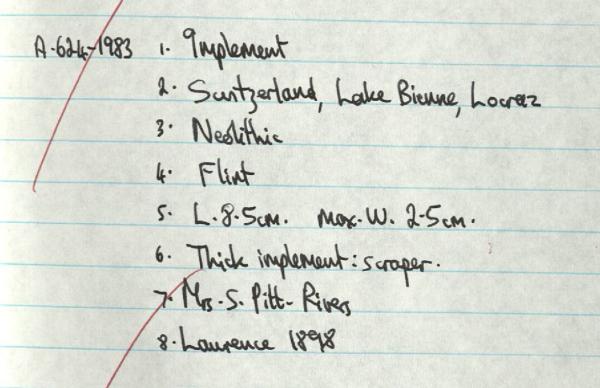 A.624-1983 1. Implement
2. Switzerland, Lake Bienne, Locraz
3. Neolithic
4. Flint
5. L. 8.5cm. max. W. 2.5cm.
6. Thick implement: scraper.
7. Mrs. S. Pitt-Rivers
8. Laurence 1898